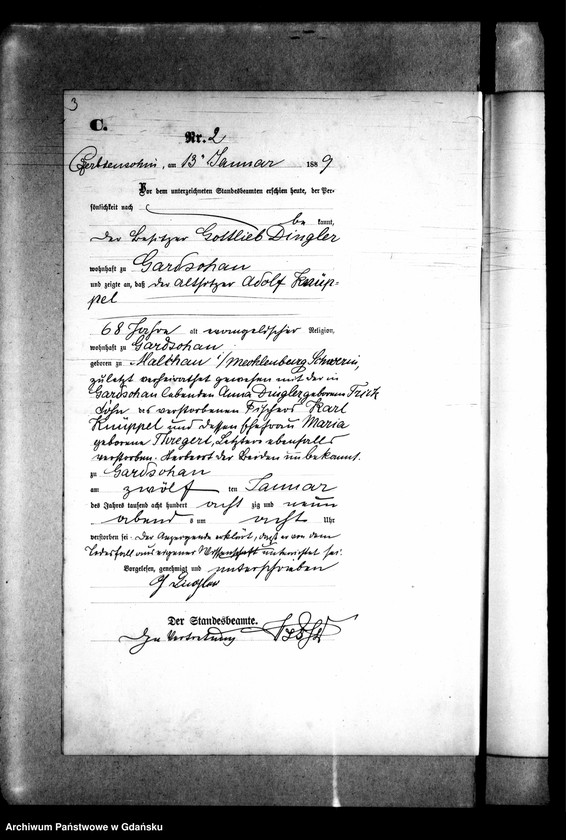 3
C.
Nr. 2
am 13. Januar 1889
Vor dem unterzeichneten Standesbeamten erschien heute, der Per-
sönlichkeit nach
be kannt,
der Besitzer Gottlieb Dingler
wohnhaft zu Gardschau
und zeigte an, daß der Altsitzer Adolf Knüp-
pel
68 Jahre alt evangelischer Religion,
wohnhaft zu Gardschau
geboren zu Malchau i/Mecklenburg Schwerin,
zuletzt verheirathet gewesen mit der in
Gardschau lebenden Anna Dingler geborene
Sohn des verstorbenen Fischers Karl
Knüppel und dessen Ehefrau Maria
geborene Thregert, Letztere ebenfalls
verstorben. Sterbeort der Beiden unbekannt.
zu Gardschau
am zwölf ten Januar
des Jahres tausend acht hundert acht zig und neun
abend s um acht Uhr
verstorben sei. Der Anzeigende erklärt, daß er von dem
Todesfall aus eigener Wissenschaft unterrichtet sei.
Vorgelesen, genehmigt und unterschrieben
G Dingler
Der Standesbeamte.
In Vertretung
Archiwum Państwowe w Gdańsku